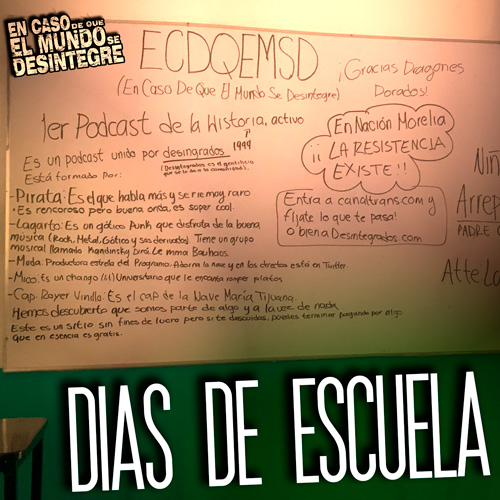 EN CASO DE QUE
EL MUNDO SE
DESINTEGRE
ECDQEMSD
(En Caso De Que El Mundo Se Desintegre)
¡Gracias Dragones
Dorados!
1er Podcast de la Historia, activo
P
1999
Es un podcast unido por desingrados.
(Desintegrados es el gentilicio
que se le da a la comunidad).
Está formado por:
En Nación Morelia
¡¡ LA RESISTENCIA
EXISTE !!
-Pirata: Es el que habla más y se rie muy raro
• Es rencoroso pero buena onda, es super cool.
-Lagarto: Es un gótico Punk que disfruta de la buena
música (Rock, Metal, Gótico y sus derivados). Tiene un grupo
musical llamado Kandinsky Dirá. Le mma Bauhaus.
-Muda: Productora estrella del Programa. Adorna la nave y en los directos está en Twitter.
-Mico: Es un chango Universitario que le encanta romper platos.
-Cap. Royer Vinilla: Es el cap de la Nave María Tijuana.
Hemos descubierto que somos parte de algo y a la vez de nada.
Este es un sitio sin fines de lucro pero si te descuidas, puedes terminar pagando por algo
que en esencia es gratis.
Entra a canaltrans.com y
fíjate lo que te pasa!
O bien a Desintegrados.com
Niñ
Arrep
PADRE
Atte Lo
DIAS DE ESCUELA